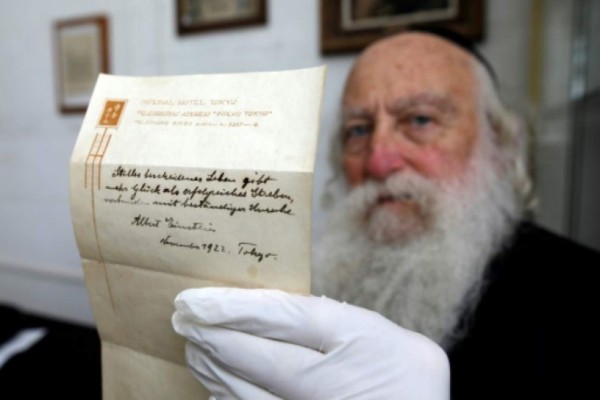 IMPERIAL HOTEL TOKYO
Stilles bescheidenes Leben gibt
mehr Glück als erfolgreiches Streben,
verbunden mit beständiger Unruhe.
Albert Einstein
November 1922. Tokyo.